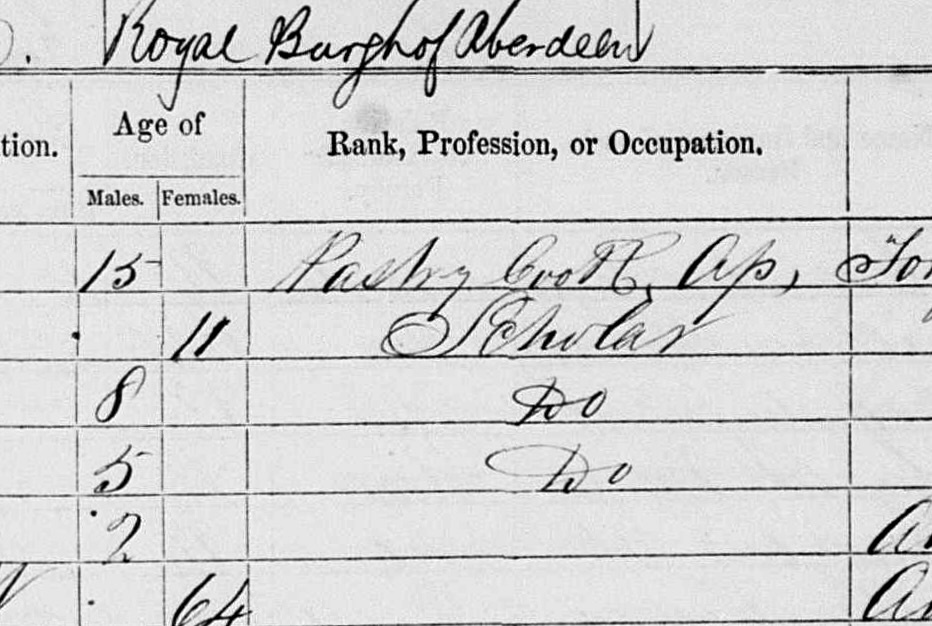 Royal Burgh of Aberdeen
tion. Age of Rank, Profession, or Occupation.
Males. Females.
15 Pastry Cook, Ap,
11 Scholar
8 Do
5 Do
2
64